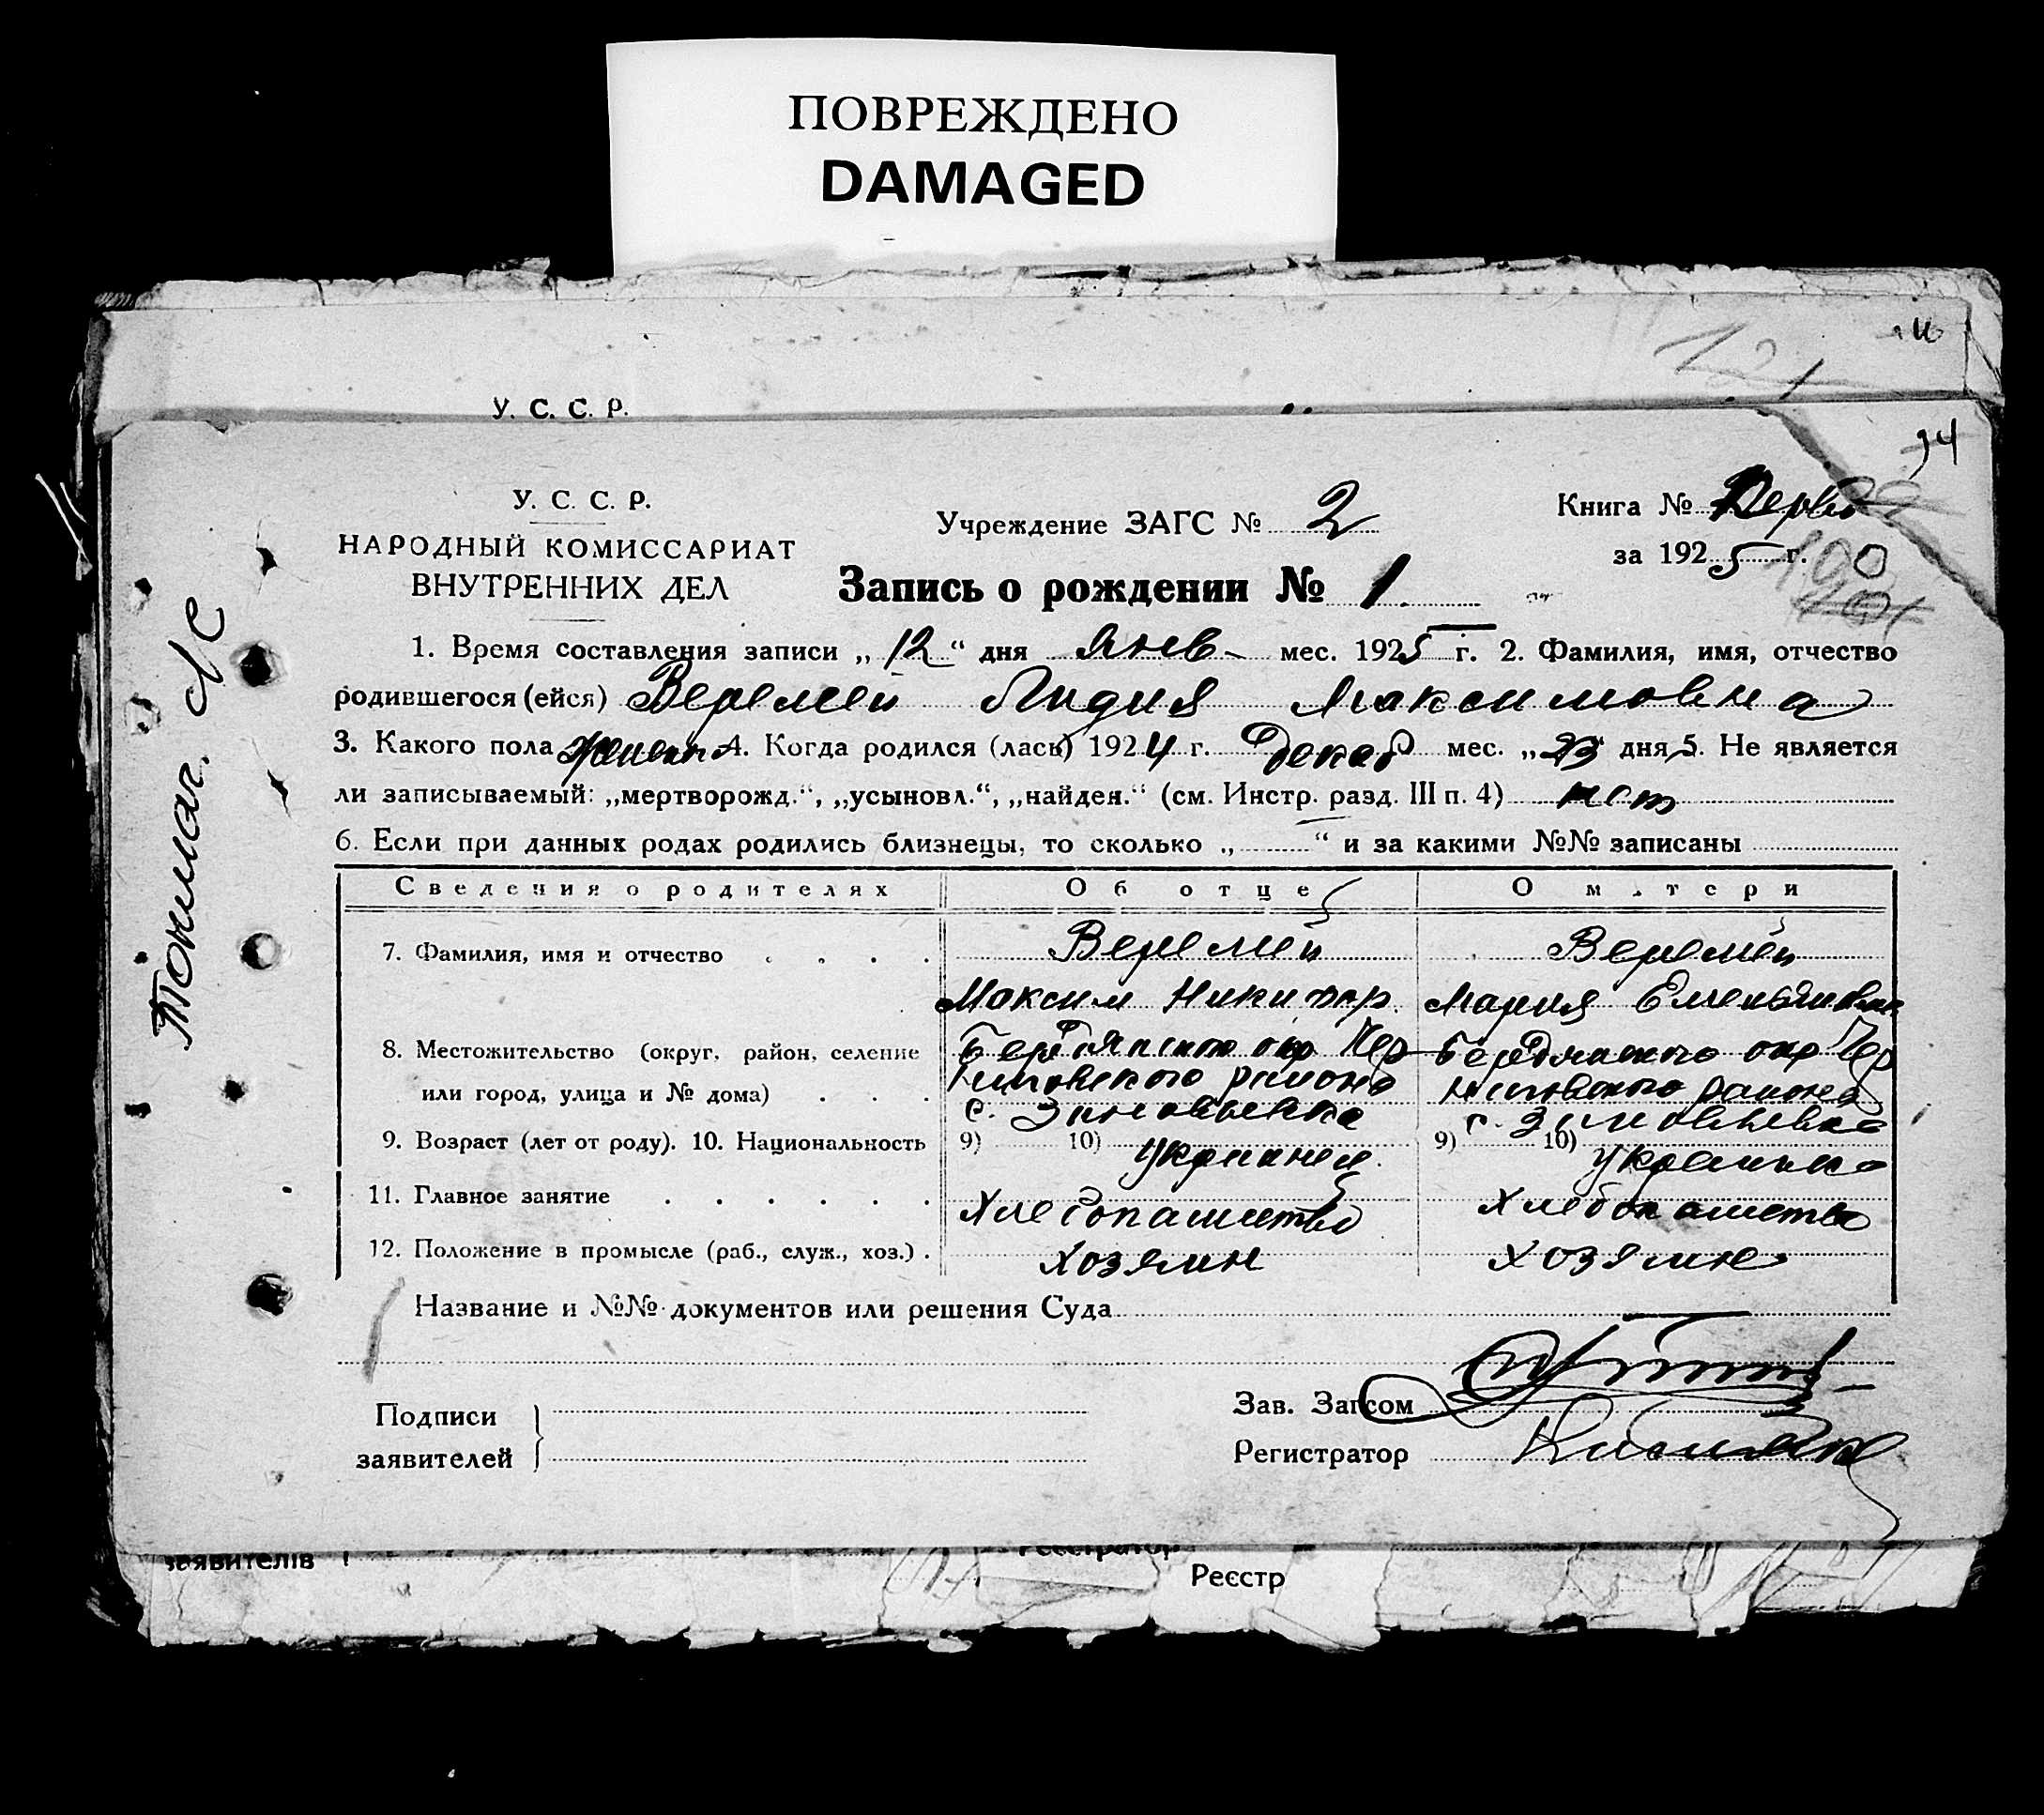 ПОВРЕЖДЕНО
DAMAGED
У. С. С. Р.
94
У. С. С. Р.
НАРОДНЫЙ КОМИССАРИАТ
ВНУТРЕННИХ ДЕЛ
Учреждение ЗАГС № 2
Книга № Перва
за 1925 г.
Запись о рождении № 1.
1. Время составления записи „12“ дня Янв- мес. 1925 г. 2. Фамилия, имя, отчество
родившегося (ейся) Веремей Лидия Максимовна
3. Какого пола женск 4. Когда родился (лась) 1924 г. Декаб мес. „23“ дня 5. Не является
ли записываемый: „мертворожд.“, „усыновл.“, „найден.“ (см. Инстр. разд. III п. 4) нет
6. Если при данных родах родились близнецы, то сколько „ “ и за какими №№ записаны
Сведения о родителях Об отце О матери
7. Фамилия, имя и отчество Веремей Веремей
Максим Никифор. Мария Емельяновна
8. Местожительство (округ, район, селение Бердянского окр Чер Бердянского окр Чер
или город, улица и № дома) ниговского района ниговского района
с. Зиновьевка с. Зиновьевка
9. Возраст (лет от роду). 10. Национальность 9) 10) украинец 9) 10) украинка
11. Главное занятие Хлебопашество Хлебопашество
12. Положение в промысле (раб., служ., хоз.) хозяин хозяйка
Название и №№ документов или решения Суда
Подписи
заявителей
Зав. Загсом
Регистратор
Токмак. с/с
заявителів
Реєстратор
Реєстр